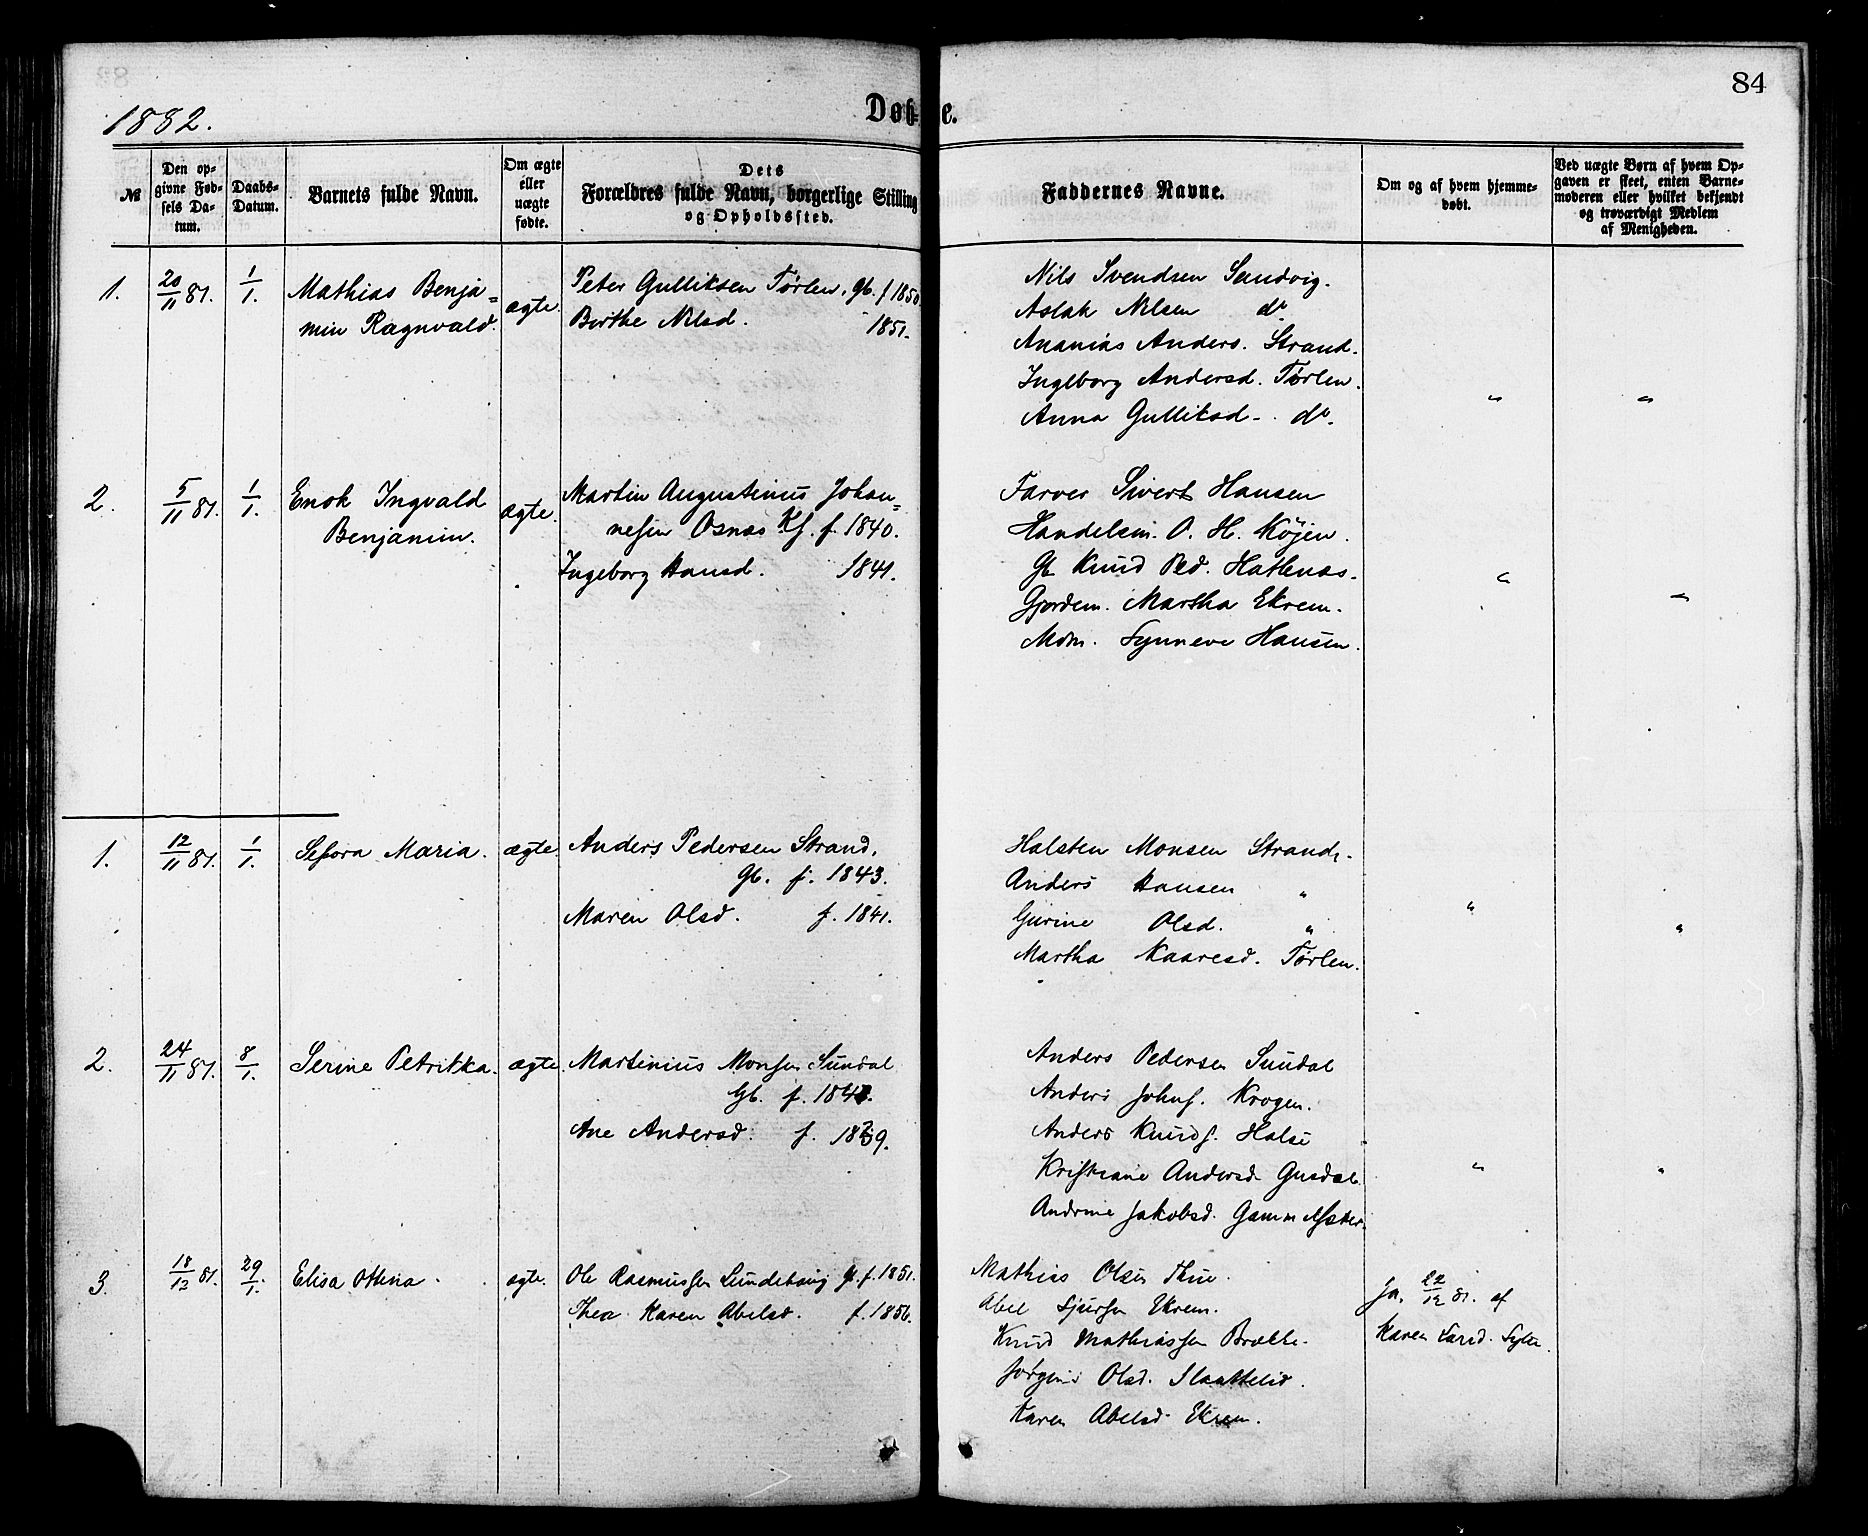 84
1882.
Døbte.
№
Den opgivne Fødsels Datum.
Daabs-Datum.
Barnets fulde Navn.
Om ægte eller uægte fødte.
Dets Forældres fulde Navn, borgerlige Stilling og Opholdssted.
Faddernes Navne.
Om og af hvem hjemmedøbt.
Ved uægte Børn af hvem Opgaven er skeet, enten Barnemoderen eller hvilket bekjendt og troværdigt Medlem af Menigheden.
1. 20/11 81. 1/1. Mathias Benja=
min Ragnvald.
ægte.
Peter Gulliksen Tørlen. Gb. f 1850.
Birthe Nilsd. 1851.
Nils Svendsen Sandvig.
Aslak Nilsen do
Ananias Anders. Strand.
Ingeborg Andersd. Tørlen.
Anna Gulliksd. do.
" "
2. 5/11 81. 1/1. Enok Ingvald
Benjamin.
ægte.
Martin Augustinus Johan=
nesen Osnæs Kf. f. 1840.
Ingeborg Hansd. 1841.
Farver Sivert Hansen
Handelsm. O. H. Køjen.
Gb Knud Ped. Hatlenæs.
Gjordem. Martha Ekrem.
Mdm. Synneve Hansen.
" "
1. 12/11 81. 1/1. Sefora Maria. ægte.
Anders Pedersen Strand.
Gb. f. 1843.
Maren Olsd. f. 1841.
Halsten Monsen Strand.
Anders Hansen "
Gurine Olsd. "
Martha Kaaresd. Tørlen.
" "
2. 24/11 81. 8/1. Serine Petrikka. ægte.
Martinius Monsen Sundal
Gb. f. 184
Ane Andersd. f. 1839.
Anders Pedersen Sundal
Anders Johns. Krogen.
Anders Knuds. Halse
Kristiane Andersd. Gusdal
Andrine Jakobsd. Gammelsæter.
" "
3. 18/12 81. 29/1. Elisa Ottina. ægte.
Ole Rasmussen Sundehaug G. f. 1851.
Thea Karen Abelsd. f. 1856.
Mathias Olsen Thue.
Abel Sjursen Ekrem.
Knud Mathiassen Brække.
Jørgine Olsd. Slaattelid.
Karen Abelsd. Ekrem.
Ja. 22/12 81. af
Karen Larsd. Sylte.